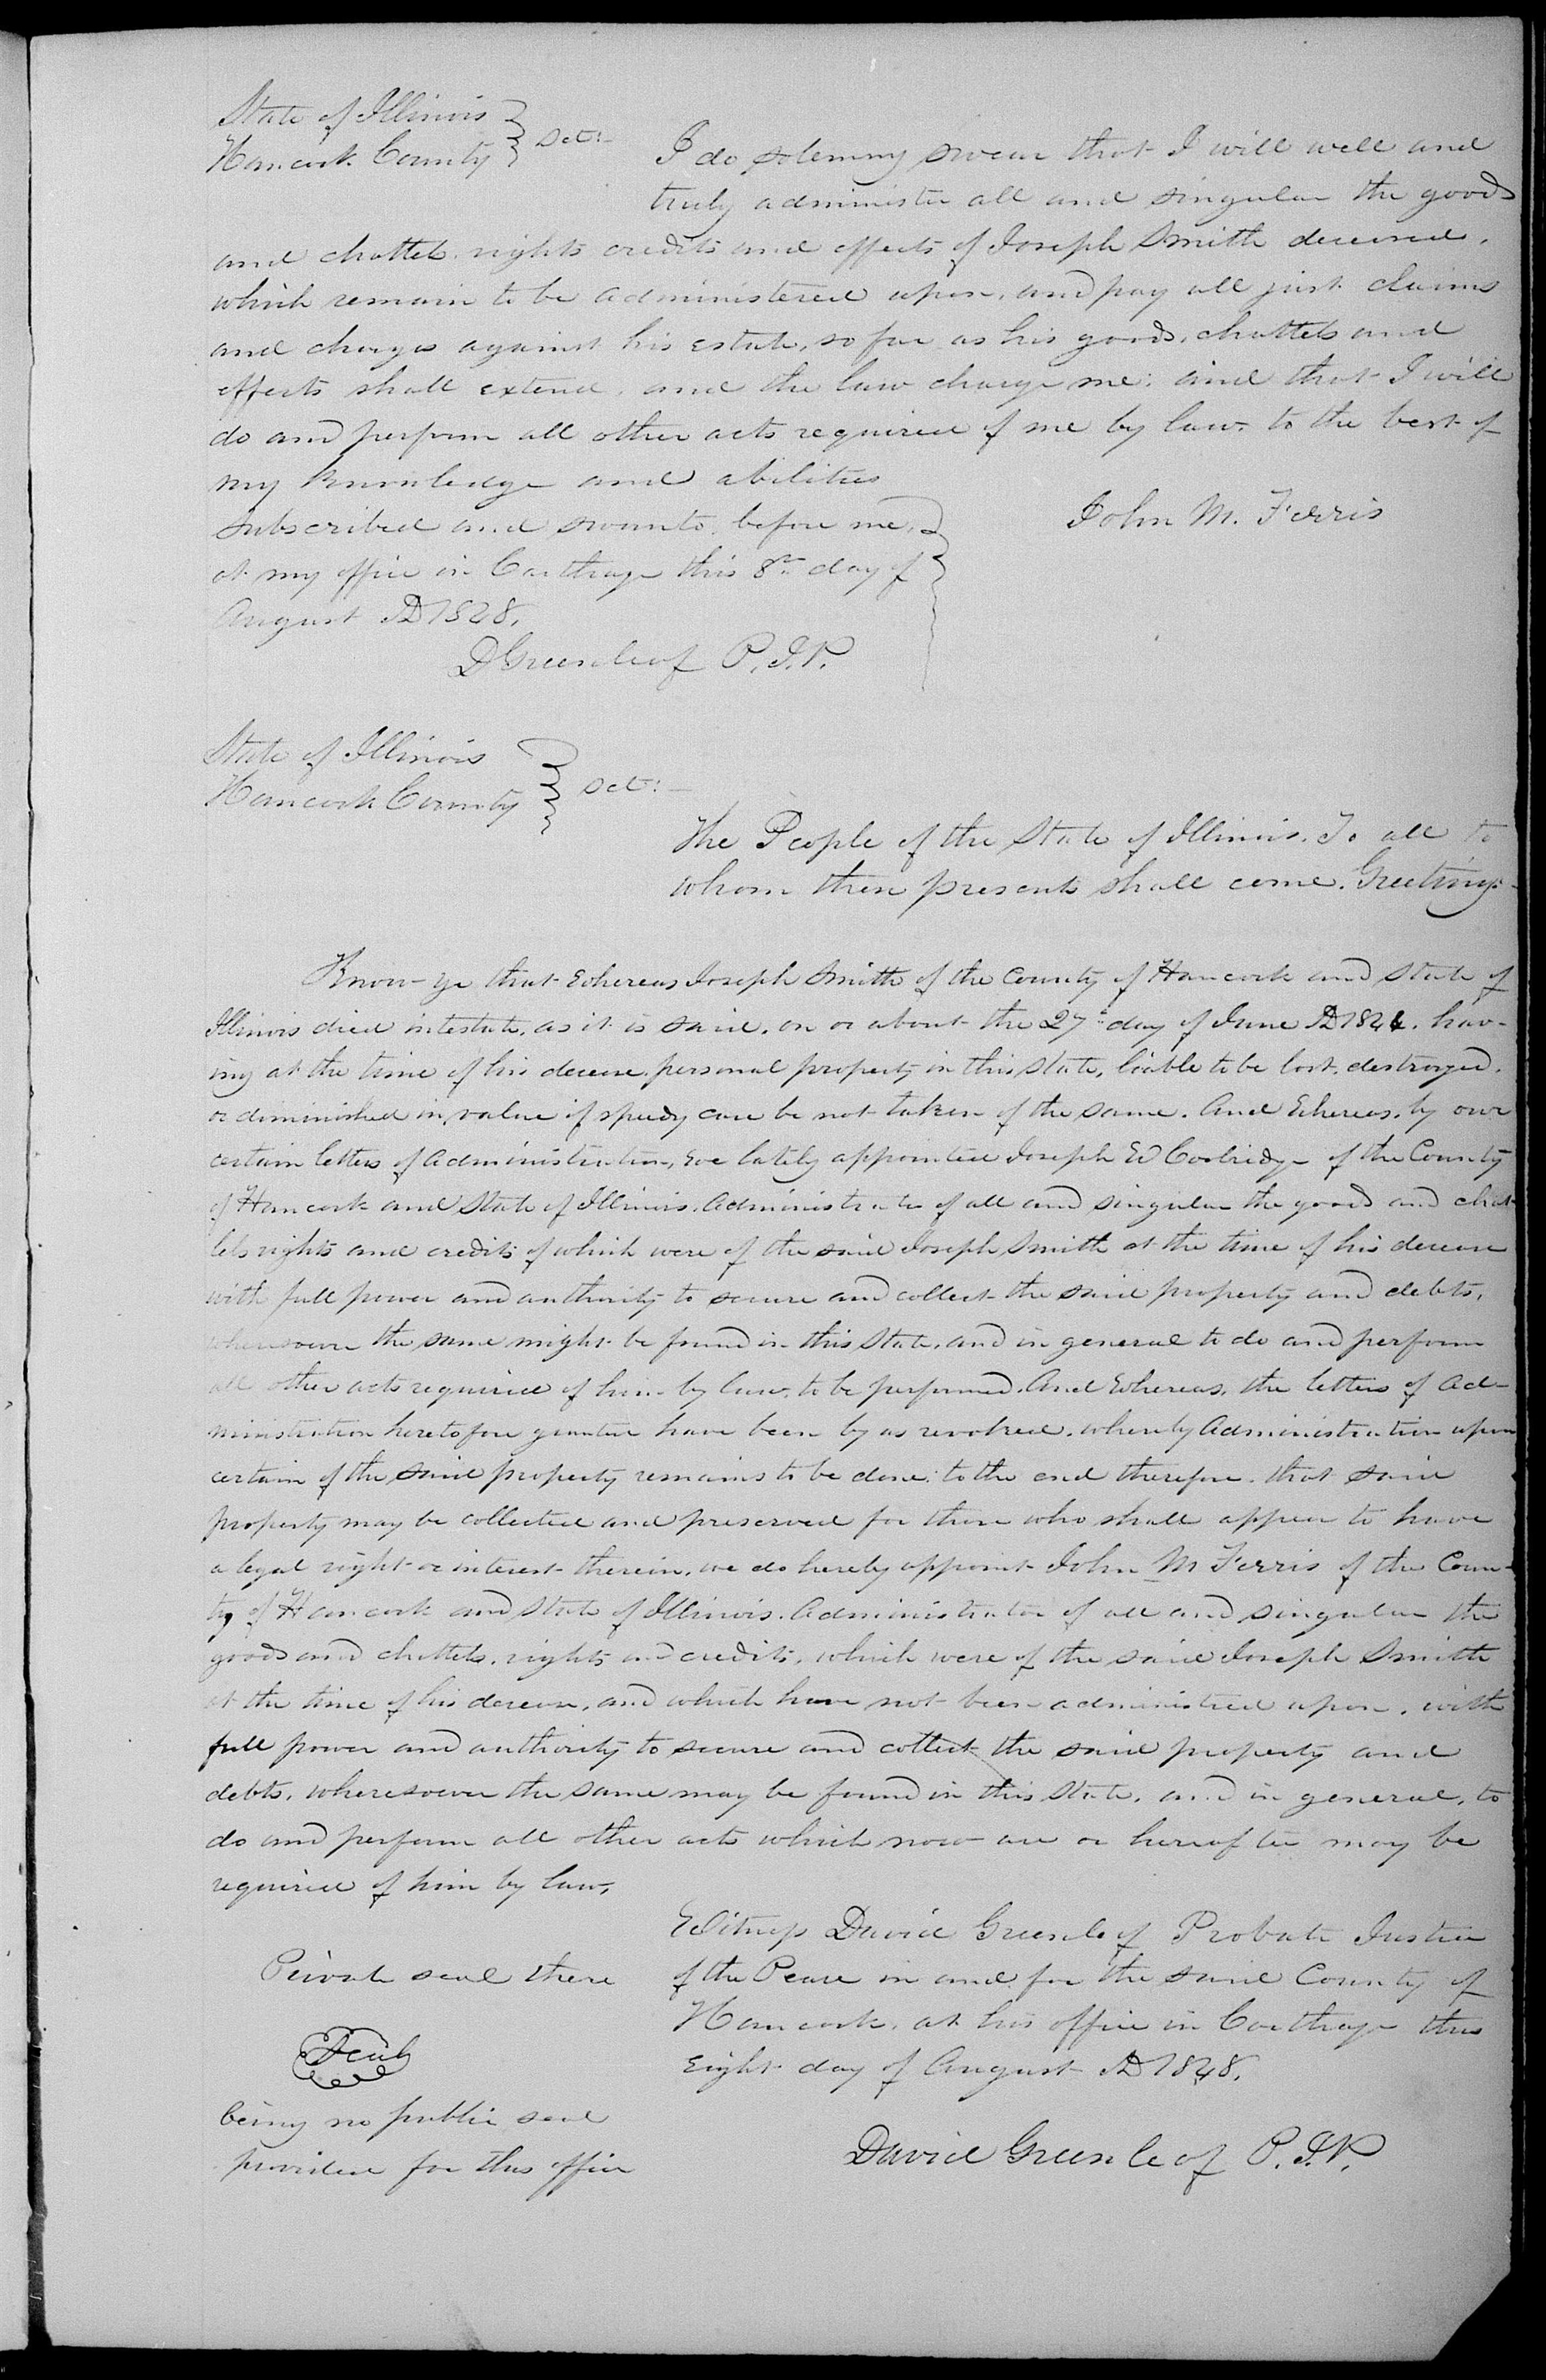 State of Illinois
Hancock County } Sct:
I do solemny swear that I will well and
truly administer all and singular the goods
and chattels rights credits and effects of Joseph Smith deceased,
which remain to be administered upon, and pay all just claims
and charges against his estate, so far as his goods, chattels and
effects shall extend, and the law charge me; and that I will
do and perform all other acts required of me by law, to the best of
my knowledge and abilities
Subscribed and sworn to before me,
at my office in Carthage this 8th day of
August AD 1848.
John M. Ferris
D Greenleaf P. J. P.
State of Illinois
Hancock County } Sct:
The People of the State of Illinois. To all to
whom these presents shall come. Greeting:
Know ye that Whereas Joseph Smith of the County of Hancock and State of
Illinois died intestate, as it is said, on or about the 27th day of June AD 1844. hav-
ing at the time of his decease personal property in this State, liable to be lost, destroyed,
or diminished in value if speedy care be not taken of the same. And Whereas, by our
certain letters of Administration, We lately appointed Joseph W Coolridge of the County
of Hancock and State of Illinois. Administrator of all and singular the goods and chat-
tels rights and credits of which were of the said Joseph Smith at the time of his decease
with full power and authority to secure and collect the said property and debts,
wheresoever the same might be found in this State, and in general to do and perform
all other acts required of him by law, to be performed. And Whereas, the letters of Ad-
ministration heretofore granted have been by us revoked, whereby Administration upon
certain of the said property remains to be done; to the end therefore, that said
property may be collected and preserved for those who shall appear to have
a legal right or interest therein, we do hereby appoint John M Ferris of the Coun-
ty of Hancock and State of Illinois. Administrator of all and singular the
goods and chattels, rights and credits, which were of the said Joseph Smith
at the time of his decease, and which have not been administred upon, with
full power and authority to secure and collect the said property and
debts, wheresoever the same may be found in this State, and in general, to
do and perform all other acts which now are or hereafter may be
required of him by law,
Witness David Greenleaf Probate Justice
of the Peace in and for the said County of
Hancock, at his office in Carthage this
Eight day of August AD 1848.
Private seal there
Seal
being no public seal
provided for this office
David Greenleaf P. J. P.